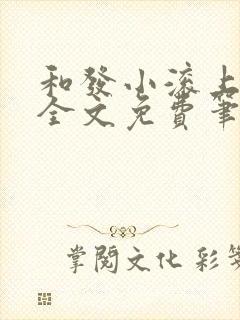 和發小滾上
全文免費筆
掌閱文化 彩